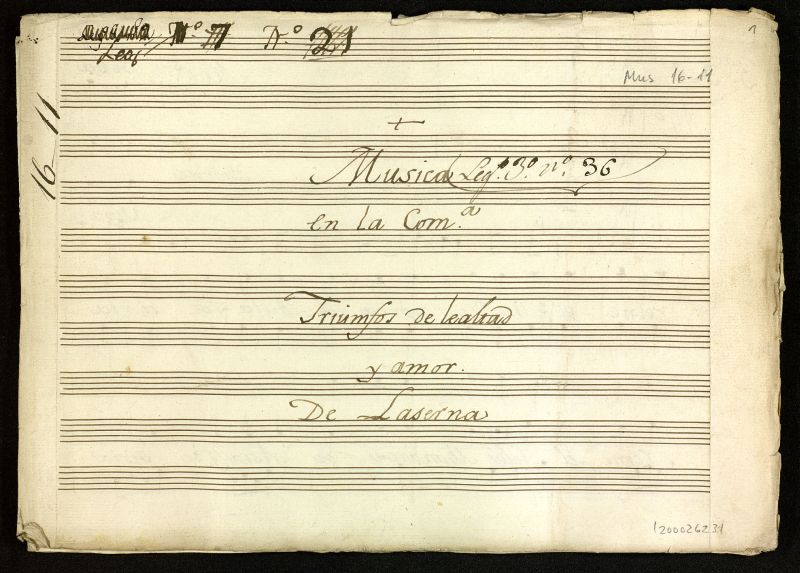 Nº 7 Nº 21
Leg
1
Mus 16-11
16-11
+
Musica Legº 3º nº 36
en la Com.ª
Triumfos de lealtad
y amor.
De Laserna
1200026231